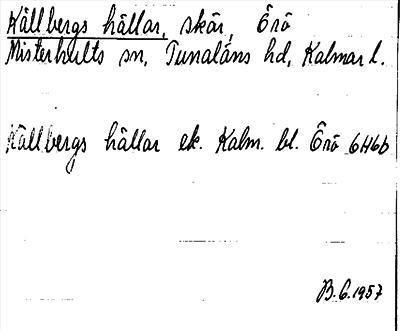 Källbergs hällar, skär, Örö
Misterhults sn, Tunaläns hd, Kalmar l.
Källbergs hällar ek. Kalm. bl. Örö 6H6b
B.G. 1957